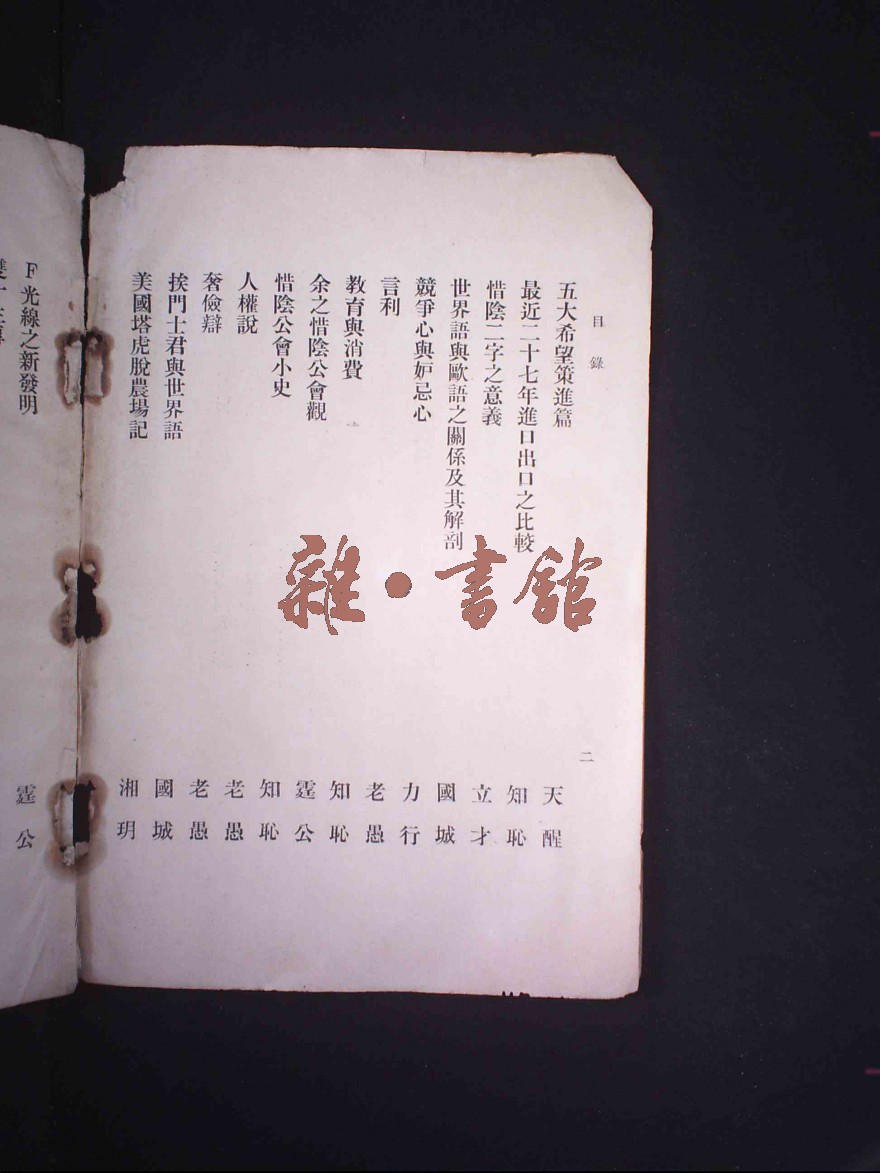 目錄
二
五大希望策進篇 天醒
最近二十七年進口出口之比較 知恥
惜陰二字之意義 立才
世界語與歐語之關係及其解剖 國城
競爭心與妒忌心 力行
言利 老愚
教育與消費 知恥
余之惜陰公會觀 霆公
惜陰公會小史 知恥
人權說 老愚
奢儉辯 老愚
挨門士君與世界語 國城
美國塔虎脫農場記 湘玥
F光線之新發明 霆公
雜·書館